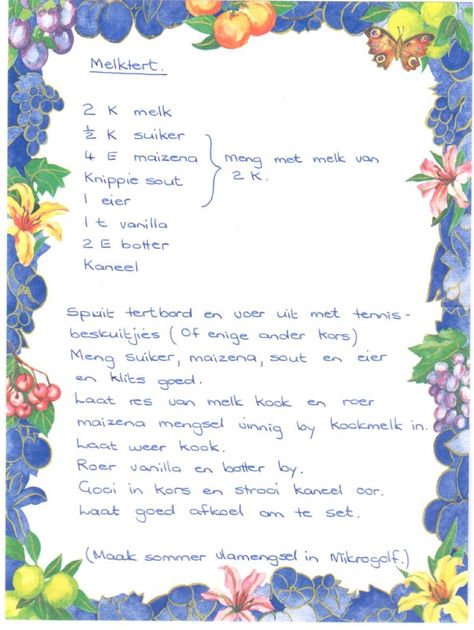 Melktert.
2 K melk
½ K suiker
4 E maizena
Knippie sout
1 eier
} Meng met melk van
2 K.
1 t vanilla
2 E botter
Kaneel
Spuit tertbord en voer uit met tennis-
beskuitjies (Of enige ander kors)
Meng suiker, maizena, sout en eier
en klits goed.
Laat res van melk kook en roer
maizena mengsel vinnig by kookmelk in.
Laat weer kook.
Roer vanilla en botter by.
Gooi in kors en strooi kaneel oor.
Laat goed afkoel om te set.
(Maak sommer vlamengsel in Mikrogolf.)